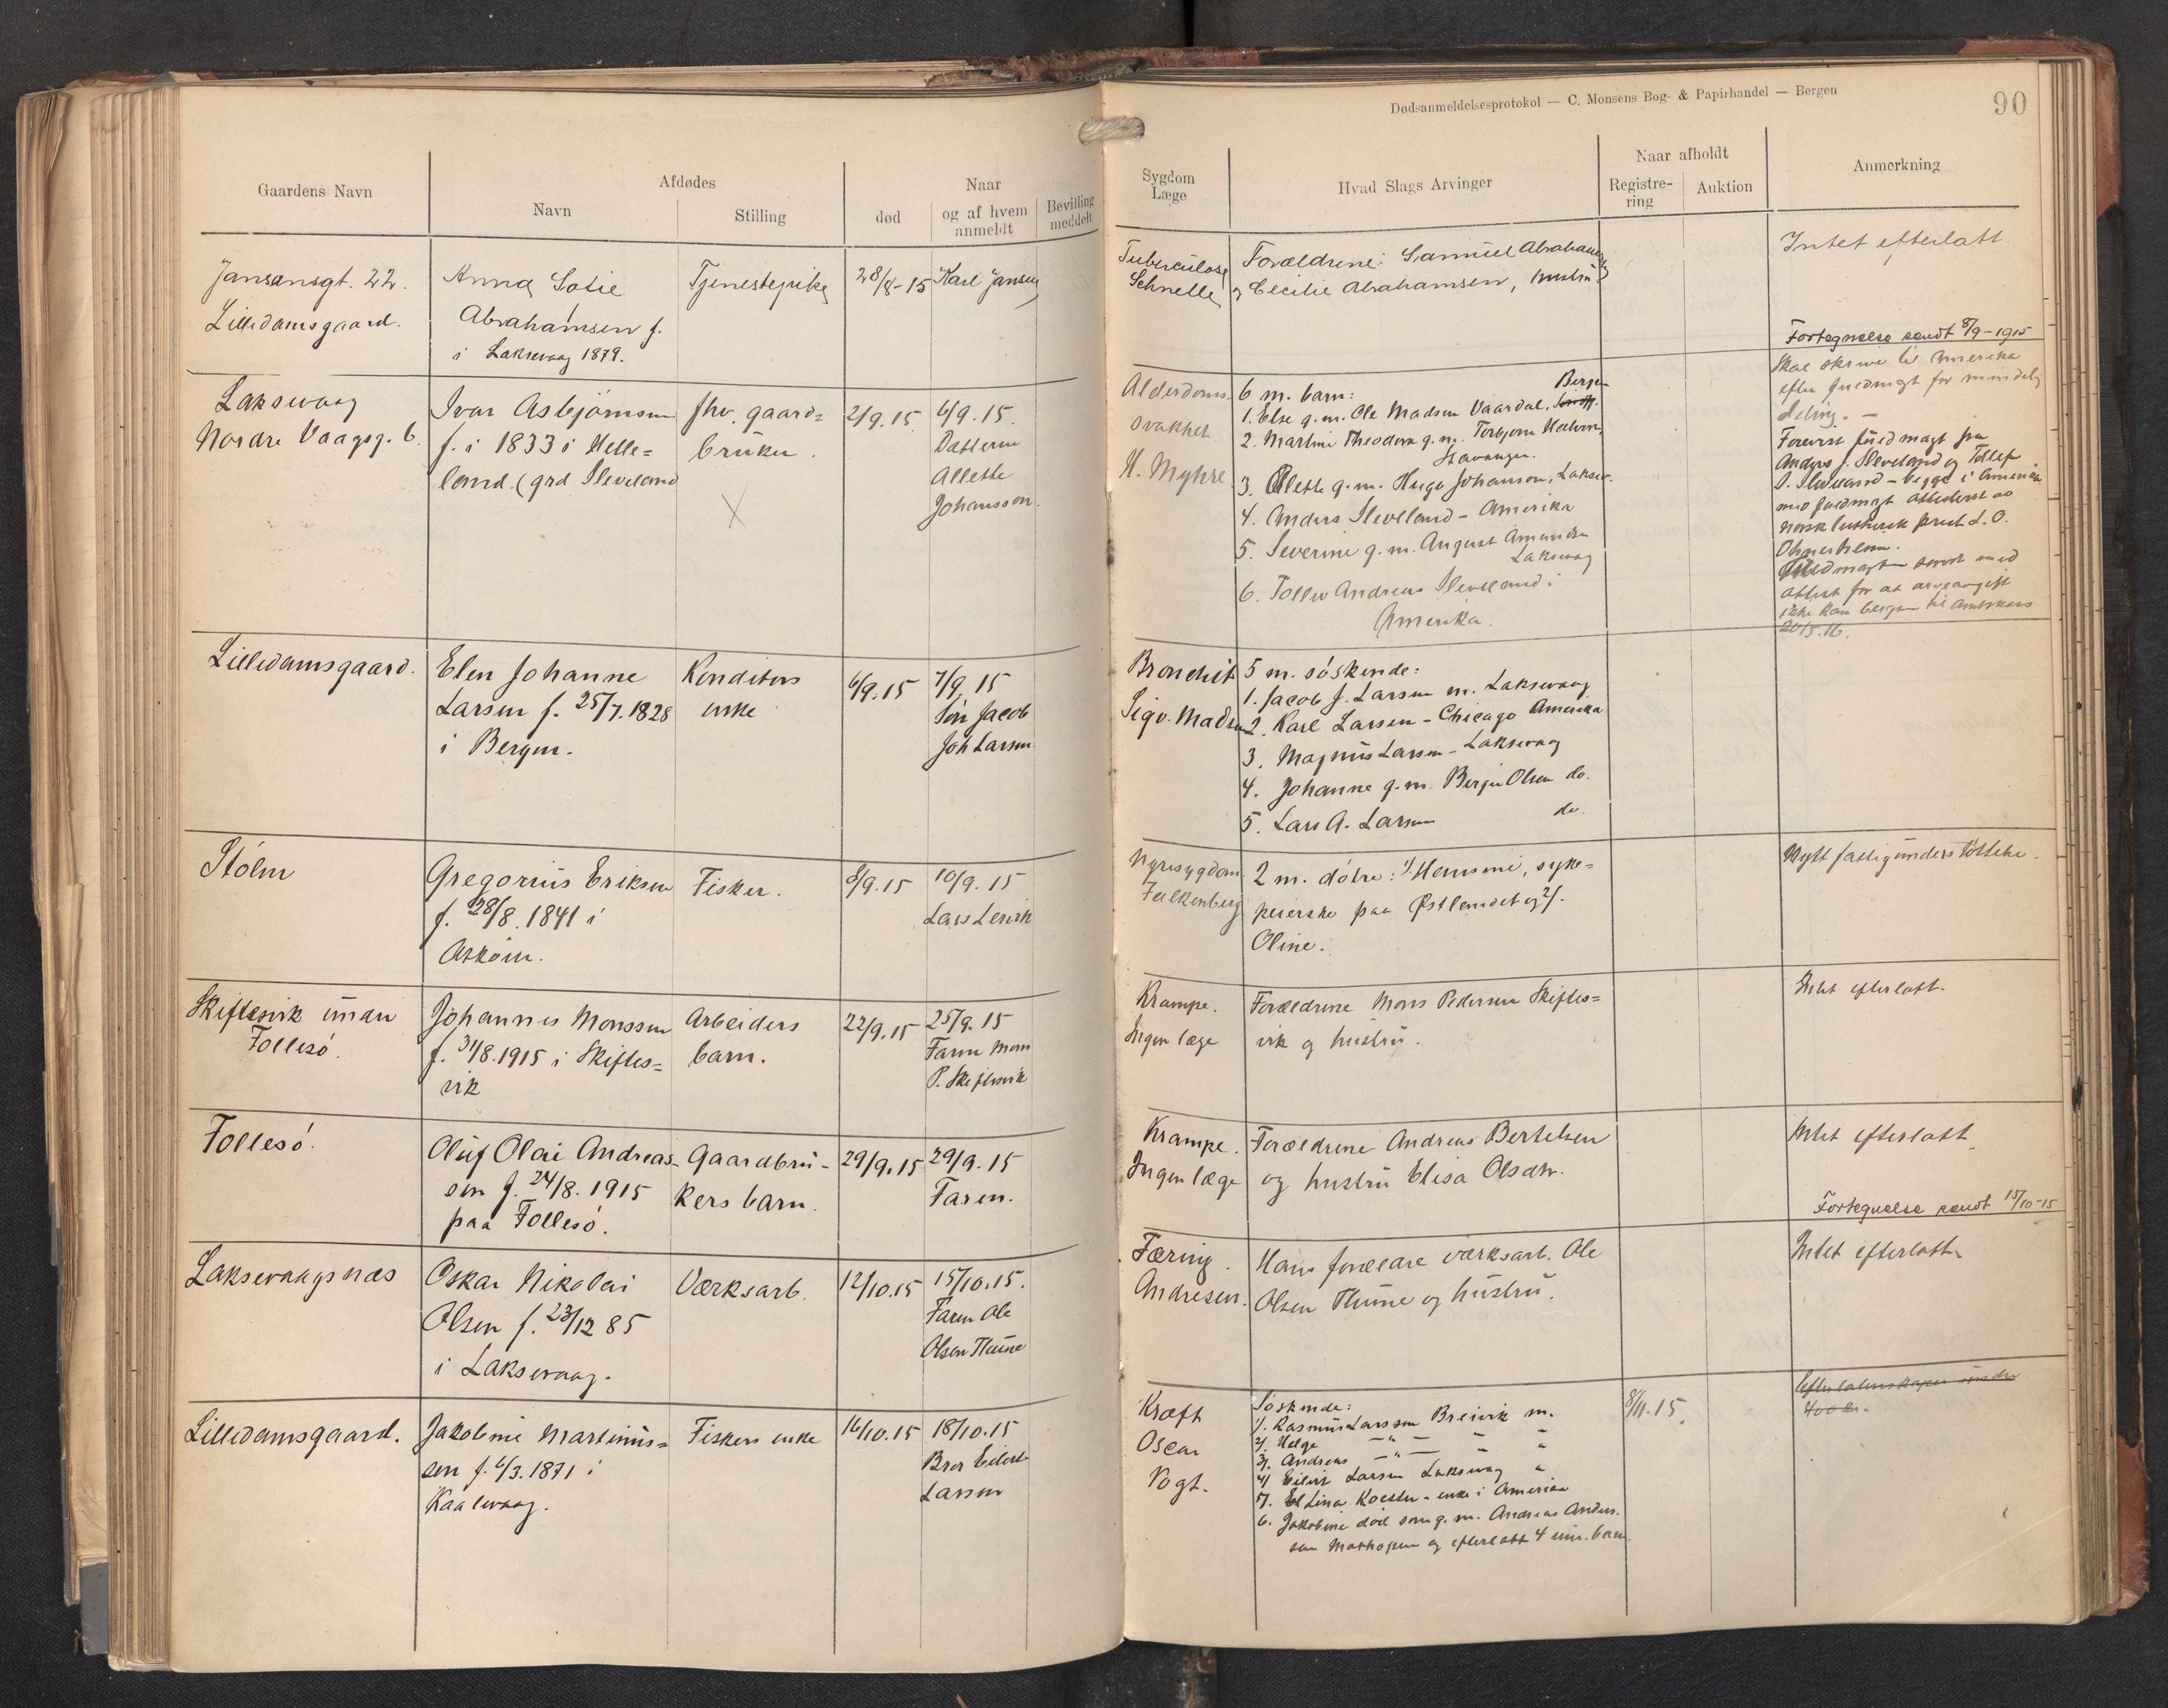 Dødsanmeldelsesprotokol — C. Monsens Bog- & Papirhandel — Bergen
90
Gaardens Navn
Afdødes
Navn
Stilling
død
Naar
og af hvem
anmeldt
Bevilling
meddelt
Sygdom
Læge
Hvad Slags Arvinger
Naar afholdt
Registre-
ring
Auktion
Anmerkning
Jansensgt. 22.
Lilledamsgaard.
Anna Sofie
Abrahamsen f.
i Laksevaag 1879.
Tjenestepike
28/8-15
Karl Jansen
Tuberculose
Schnelle
Forældrene: Samuel Abrahamsen
og Cecilie Abrahamsen, hustru
Intet efterlatt
Fortegnelse sendt 8/9-1915
Laksevaag
Nordre Vaagsg. 6.
Ivar Asbjørnsen
f. i 1833 i Helle=
land. (grd Sleveland
fhv. gaard=
bruker.
2/9.15.
6/9.15.
Datteren
Allette
Johansson.
Alderdoms
svakhet
H. Myhre
6 m. barn:
1. Else g.m. Ole Madsen Vaardal, Bergen
2. Martine Theodora g.m. Torbjørn
Stavanger.
3. Alette g.m. Hugo Johanson, Laksev.
4. Anders Slevelland - Amerika
5. Severine g.m. August Amundsen
Laksevaag
6. Tollev Andreas Slevelland i
Amerika.
Skal skrive til Amerika
efter fuldmagt for mindelig
deling. —
Forevist fuldmagt fra
Anders J. Sleveland og Tollef
Sleveland - begge i Amerika
med fuldmagt attesteret av
norsk luthersk prest L. O.
Fuldmagten sendt med
attest for at arveavgift
ikke kan
20/5.16.
Lilledamsgaard.
Elen Johanne
Larsen f. 25/7.1828
i Bergen.
Konditors
enke
6/9.15
7/9.15
Søn Jacob
Joh Larsen
Bronchit
Sigv. Madsen
5 m. søskende:
1. Jacob J. Larsen m. Laksevaag
2. Karl Larsen - Chicago Amerika
3. Magnus Larsen - Laksevaag
4. Johanne g.m. Berge Olsen do.
5. Lars A. Larsen do
Stolm
Gregorius Eriksen
f. 28/8.1841 i
Askøen.
Fisker.
8/9.15
10/9.15
Lars Lervik
Nyresygdom
Falkenberg
2 m. døtre: 1/ Hansine, syke=
pleierske paa Østlandet og 2/.
Oline.
Nytt fattigunderstøttelse.
Skiftesvik innan
Follesø.
Johannes Monssen
f. 31/8.1915 i Skiftes=
vik
Arbeiders
barn.
22/9.15
25/9.15
Faren Mons
P. Skiftesvik
Krampe.
Ingen læge
Forældrene Mons Pedersen Skiftes=
vik og hustru.
Intet efterlatt.
Follesø.
Oluf Olai Andreas-
sen f. 24/8.1915
paa Follesø.
Gaardbru-
kers barn.
29/9.15
29/9.15
Faren.
Krampe.
Ingen læge
Forældrene Andreas Bertelsen
og hustru Elisa Olsdtr.
Intet efterlatt
Fortegnelse sendt 15/10-15
Laksevaagsnæs
Oskar Nikolai
Olsen f. 23/12 85
i Laksevaag.
Værksarb.
12/10.15
15/10.15.
Faren Ole
Olsen Thune
Tæring.
Andresen.
Hans forældre værksarb. Ole
Olsen Thune og hustru.
Intet efterlatt
Lilledamsgaard.
Jakobine Martinus=
sen f. 6/3.1871 i
Kaalvaag.
Fiskers enke
16/10.15
18/10.15
Bror Eilert
Larsen
Kræft
Oscar
Vogt.
Søskende:
1/. Rasmus Larssen Breivik m.
2/. Helge — " — - "
3/. Andreas — " — - "
4/ Eilert Larsen Laksevaag "
5/. Elina Koester - enke i Amerika
6. Jakobine død som g.m. Andreas Anders.
sen Mathopen og efterlatt 4 um. barn.
8/11.15.
Efterlatenskaper under
400 kr.